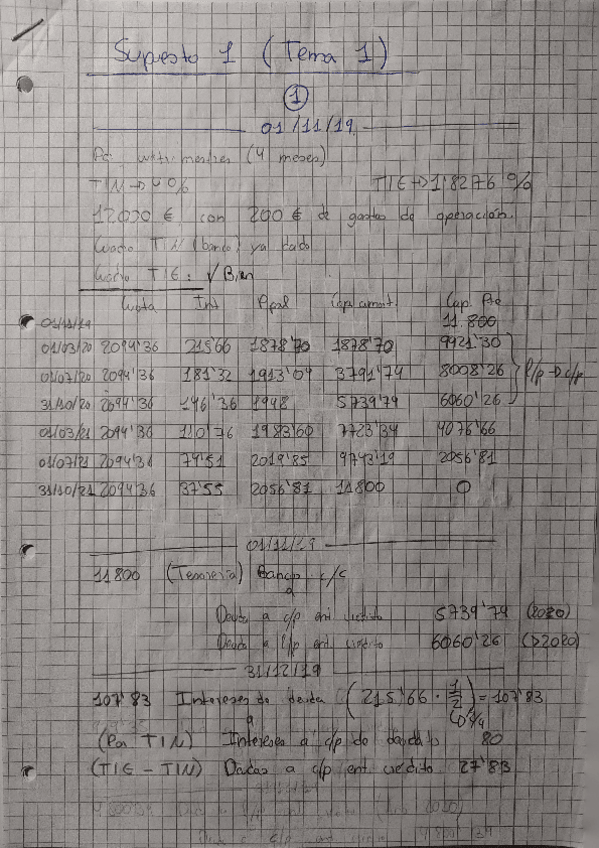 Supuesto 1 (Tema 1)
1
01/11/19
(4 meses)
TIN → 4% TIE → 1'8276 %
12000 € con 200 € de gastos de operación.
Cuadro TIN (banco) ya dado
Cuadro TIE: √ Bien
Cuota Int Ppal Cap. amort. Cap. Pte
01/11/19 11.800
01/03/20 2094'36 215'66 1878'70 1878'70 9921'30
01/07/20 2094'36 181'32 1913'04 3791'74 8008'26
31/10/20 2094'36 146'36 1948 5739'74 6060'26
l/p → c/p
01/03/21 2094'36 110'76 1983'60 7723'34 4076'66
01/07/21 2094'36 74'51 2019'85 9743'19 2056'81
31/10/21 2094'36 37'55 2056'81 11800 0
01/11/19
11800 (Tesorería) Banco c/c
a
Deudas a c/p ent crédito 5739'74 (2020)
Deudas a l/p ent crédito 6060'26 (>2020)
31/12/19
107'83 Intereses de deuda (215'66 · 1/2) = 107'83
a
(Por TIN) Intereses a c/p de deudas 80
(TIE - TIN) Deudas a c/p ent crédito 27'83